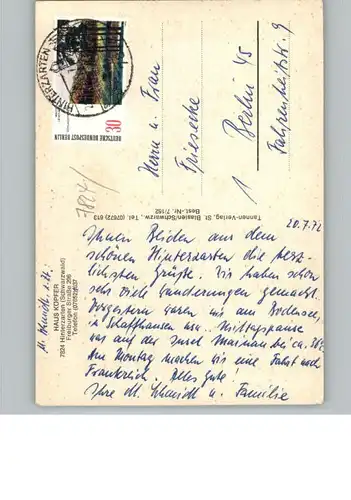 HINTERZARTEN
30
DEUTSCHE BUNDESPOST BERLIN
Herrn u. Frau
Friesecke
1 Berlin 45
Fahrenheitstr. 9
7824/
Tannen-Verlag, St. Blasien/Schwarzw., Tel. (07672) 613
Best.-Nr. 7/152
M. Schmidt z. Zt.
HAUS KÖPFER
7824 Hinterzarten (Schwarzwald)
Freiburger Straße 286
Telefon (07652)
20.7.72
Ihnen Beiden aus dem
schönen Hinterzarten die herz-
lichsten Grüße. Wir haben schon
sehr viele Wanderungen gemacht.
Vorgestern waren wir am Bodensee,
in Schaffhausen usw. Mittagspause
war auf der Insel Mainau bei ca. 36°.
Am Montag machen wir eine Fahrt nach
Frankreich. Alles Gute!
Ihre M. Schmidt u. Familie